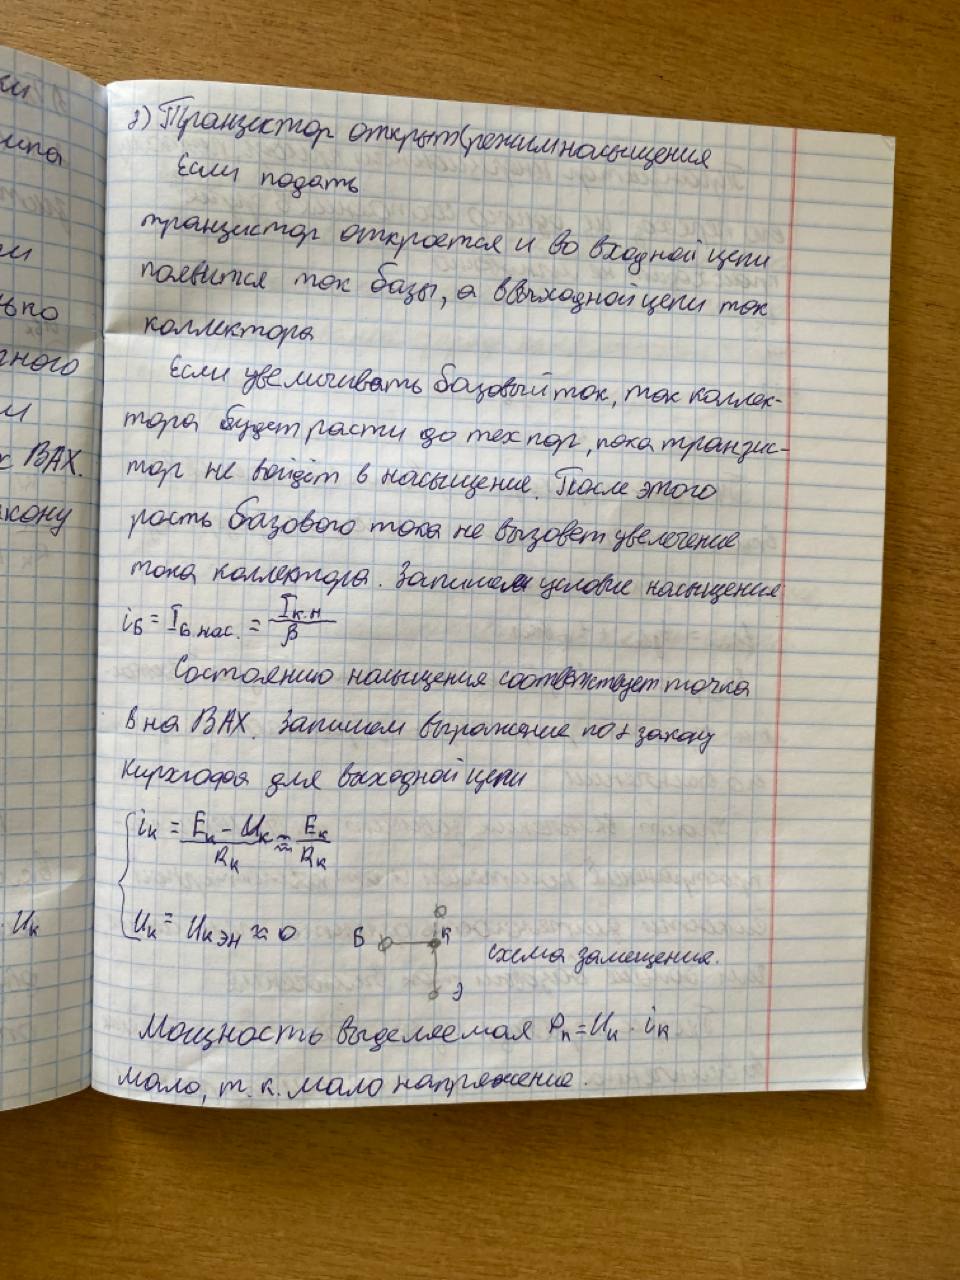 ки
типа
ми
лько
чного
и
к ВАХ.
акону
. Uк
в) Транзектор открыт(режим насыщения
Если подать
транзистор откроется и во входной цепи
появится ток базы, а в выходной цепи ток
коллектора
Если увеличивать базовый ток, ток коллек-
тора будет расти до тех пор, пока транзис-
тор не войдёт в насыщение. После этого
рость базового тока не вызовет увелечение
тока коллектора. Запишем условие насыщения
iб = Iб нас. = Iк.н / β
Состоянию насыщения соответствует точка
В на ВАХ. Запишем выражение по закону
Кирхгофа для выходной цепи
iк = Eк - Uк / Rк ≈ Eк / Rк
Uк = Uкэн ≈ 0
Б К Э схема замещения.
Мощность выделяемая Pк = Uк · iк
мало, т. к. мало напряжение.